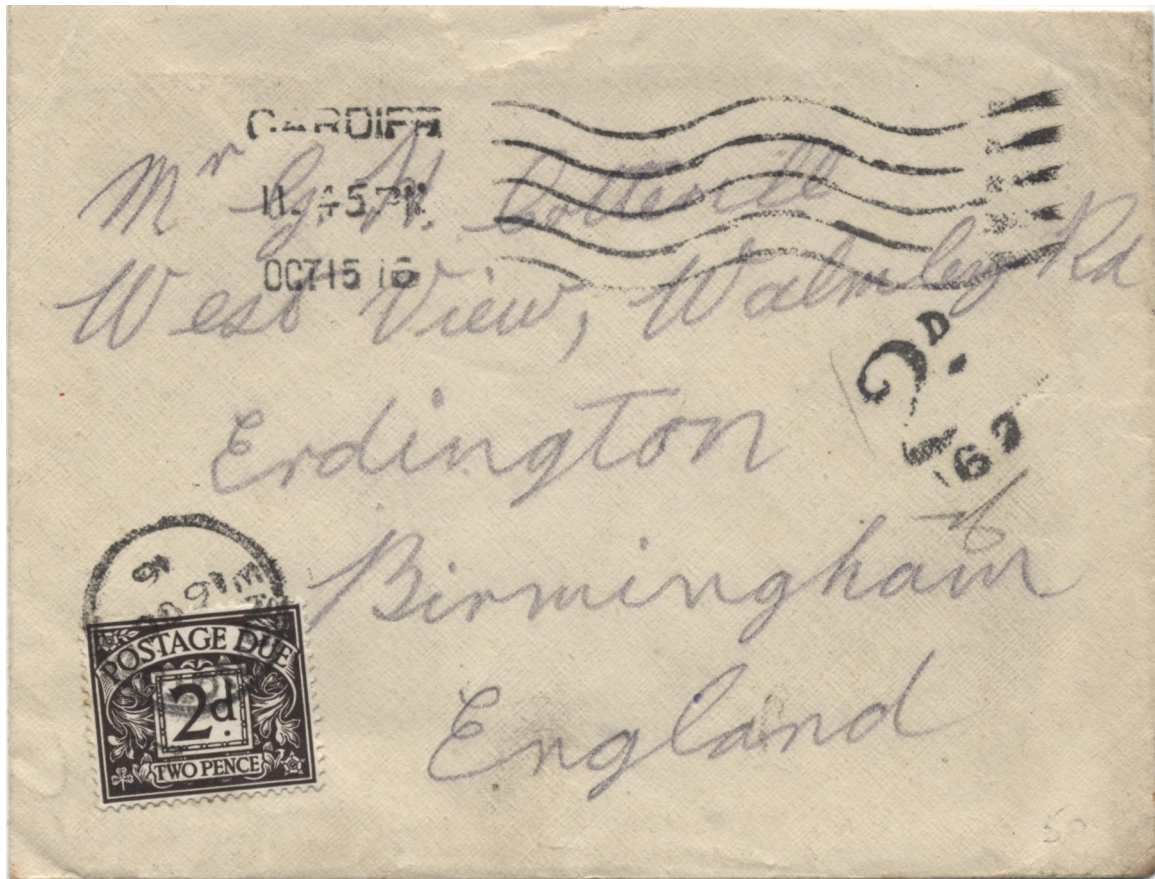 CARDIFF
11.45 PM
OCT 15 16
Mr G. H. Cotterill
West View, Walmley Rd
Erdington
Birmingham
England
2D.
162
16
16 OC
POSTAGE DUE
2d.
TWO PENCE
50